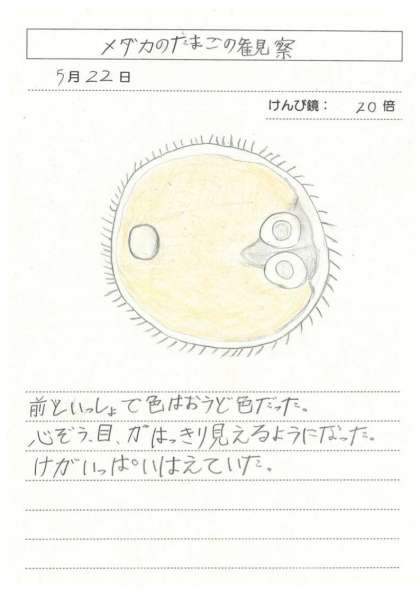 メダカのたまごの観察
5月22日
けんび鏡： 20倍
前といっしょで色はおうど色だった。
心ぞう、目、がはっきり見えるようになった。
けがいっぱいはえていた。